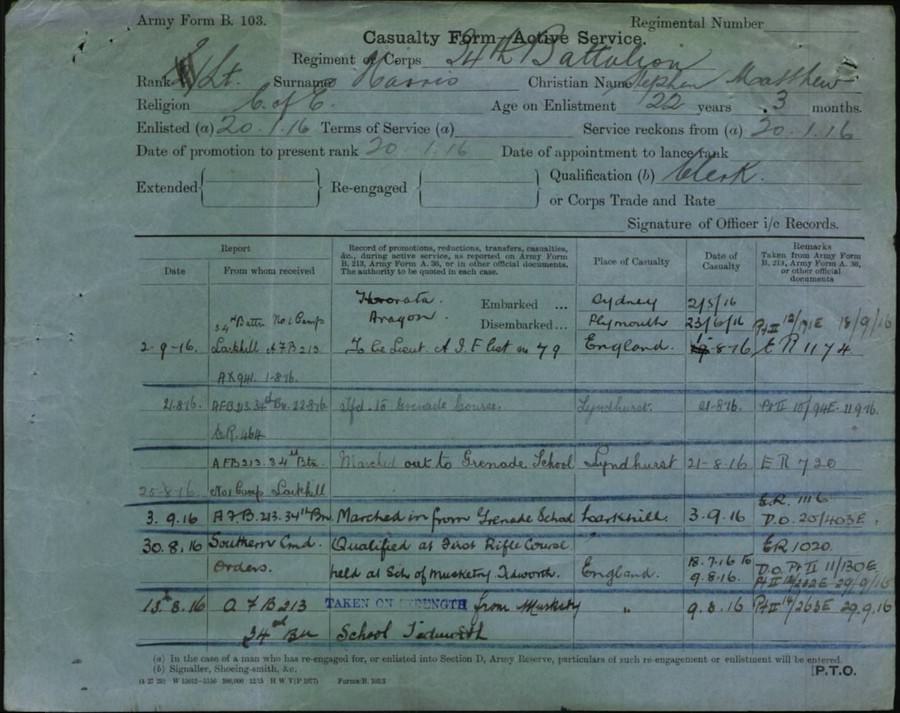 Army Form B. 103.
Regimental Number
Casualty Form—Active Service.
Regiment or Corps 34th Battalion
Rank 2/Lt. Surname Harris Christian Name Stephen Matthew
Religion C of E. Age on Enlistment 22 years 3 months.
Enlisted (a) 20.1.16 Terms of Service (a) Service reckons from (a) 20.1.16
Date of promotion to present rank 20 1.16 Date of appointment to lance rank
Extended Re-engaged Qualification (b) Clerk.
or Corps Trade and Rate
Signature of Officer i/c Records.
Report
Date From whom received
Record of promotions, reductions, transfers, casualties, &c., during active service, as reported on Army Form B. 213, Army Form A. 36, or in other official documents. The authority to be quoted in each case.
Place of Casualty
Date of Casualty
Remarks Taken from Army Form B. 213, Army Form A. 36, or other official documents
Hororata. Embarked ... Sydney 2/5/16
Aragon. Disembarked ... Plymouth 23/6/16
34th Battn No 1 Camp
2-9-16. Larkhill A F B 213 To be Lieut. A.I.F List No 79 England. 1-8-16 ER 1174
Pt II 12/191E 18/9/16
AX941. 1-8-16.
21.8.16. AFB213 34th Bn. 22.8.16 Tfd. to Grenade Course. Lyndhurst. 21-8-16. Pt II 10/94E 11.9.16.
E.R. 464
AFB213. 34th Btn. Marched out to Grenade School Lyndhurst 21-8-16 E R 720
25-8-16. No 1 Camp Larkhill
E.R. 1116
3.9.16 A.F.B.213.34th Bn Marched in from Grenade School Larkhill. 3.9.16 D.O. 20/403E.
30.8.16 Southern Cmd. Qualified at First Rifle Course ER 1020.
Orders. held at Sch of Musketry Tidworth. England. 18.7.16 to 9.8.16. D.O. Pt II 11/130E
Pt II 12/202E 29/9/16
13.8.16 A F B 213 TAKEN ON STRENGTH from Musketry " 9.8.16 Pt II 14/263E 29.9.16
34th Bn School Tidworth
(a) In the case of a man who has re-engaged for, or enlisted into Section D, Army Reserve, particulars of such re-engagement or enlistment will be entered.
(b) Signaller, Shoeing-smith, &c.
P.T.O.